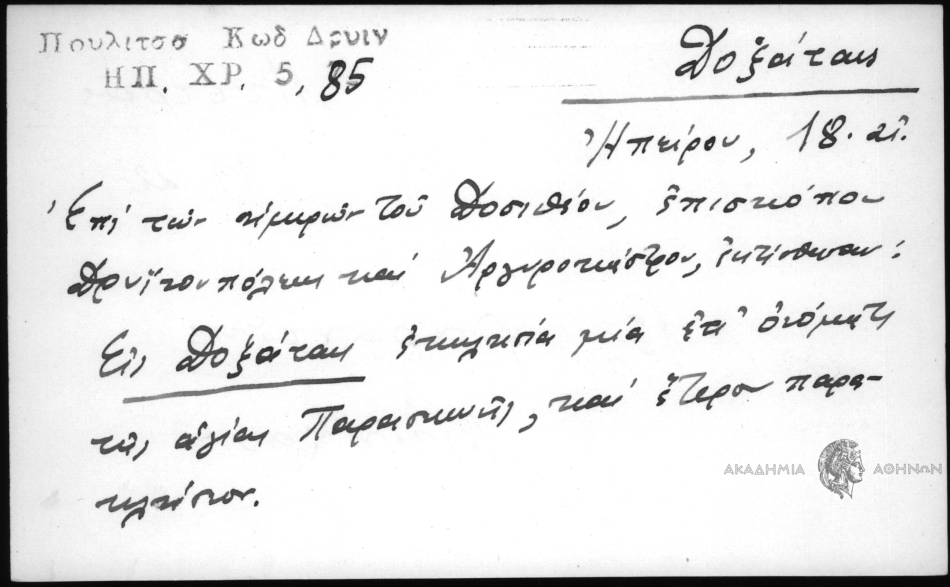 Πουλιτσα Κωδ Δρυιν
ΗΠ. ΧΡ. 5, 85
Δοξάτες
Ἠπείρου, 18. αἰ.
Ἐπί τῶν ἡμερῶν τοῦ Δοσιθέου, ἐπισκόπου
Δρυϊνουπόλεως καί Ἀργυροκάστρου, ἐκτίσθησαν:
Εἰς Δοξάτες ἐκκλησία μία ἐπ' ὀνόματι
τῆς ἁγίας Παρασκευῆς, καί ἕτερον παρα-
κλήσιον.
ΑΚΑΔΗΜΙΑ ΑΘΗΝΩΝ